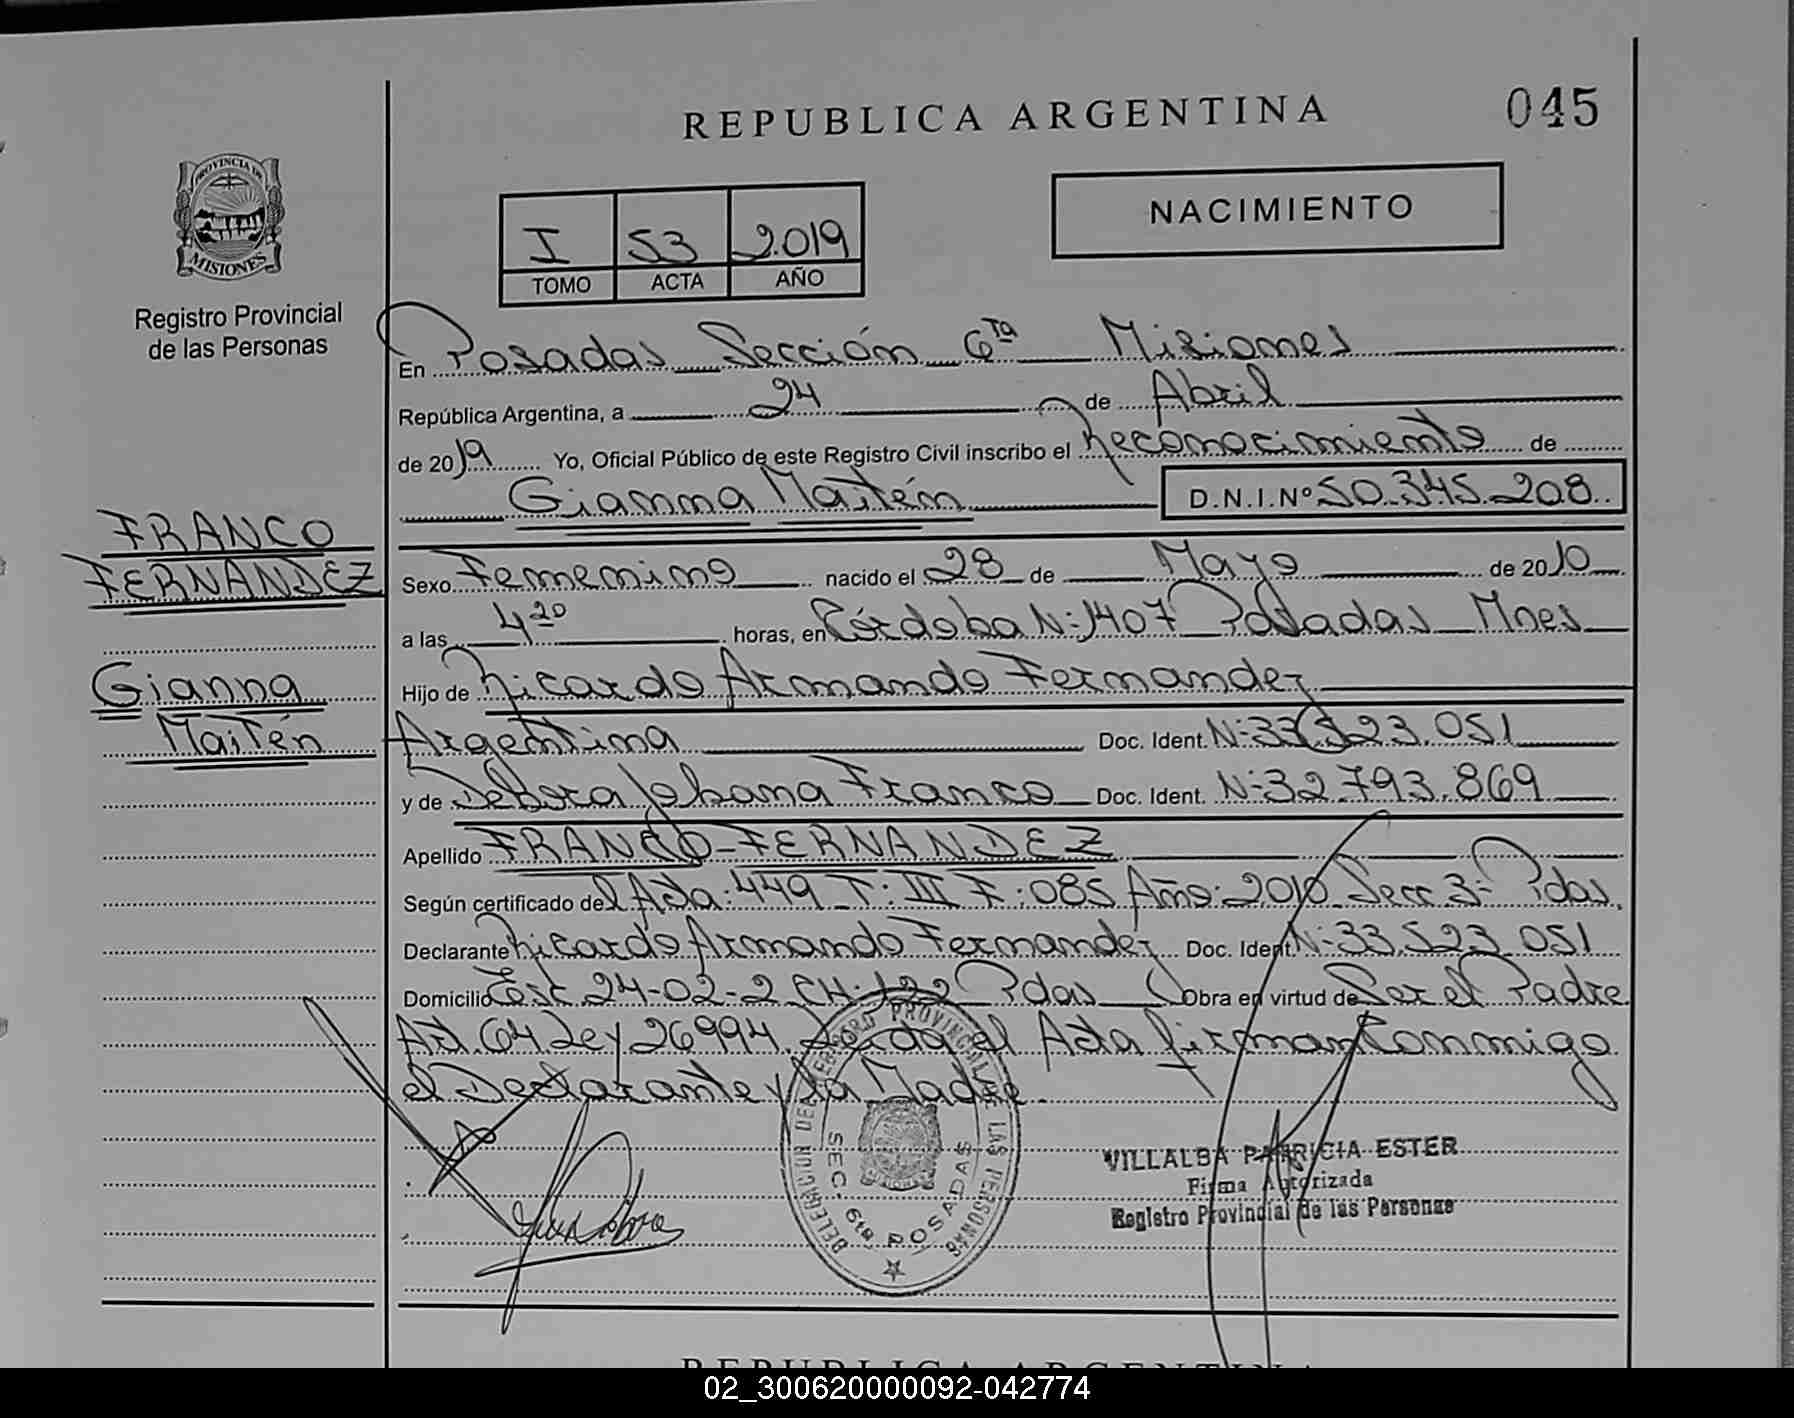 REPUBLICA ARGENTINA
045
PROVINCIA DE
MISIONES
Registro Provincial
de las Personas
NACIMIENTO
I 53 2.019
TOMO ACTA AÑO
En Posadas Sección 6ta Misiones
República Argentina, a 24 de Abril
de 2019 Yo, Oficial Público de este Registro Civil inscribo el Reconocimiento de
Gianna Maitén D.N.I.Nº 50.345.208
FRANCO
FERNANDEZ
Gianna
Maitén
Sexo Femenino nacido el 28 de Mayo de 2010
a las 4 20 horas, en Córdoba N:1407 Posadas Mnes
Hijo de Ricardo Armando Fernandez
Argentina Doc. Ident. N:33.523.051
y de Debora Johana Franco Doc. Ident. N:32.793.869
Apellido FRANCO-FERNANDEZ
Según certificado del Acta:449 T:III F:085 Año:2010 Secc 3- Pdas.
Declarante Ricardo Armando Fernandez Doc. Ident. N:33.523.051
Domicilio 24-02-2 CH:122 Pdas Obra en virtud de Ser el Padre
Art. 64 Ley 26994. Leida el Acta firman conmigo
el Declarante y la Madre.
DELEGACION DEL REGISTRO PROVINCIAL DE LAS PERSONAS
SEC. 6ta POSADAS
VILLALBA PATRICIA ESTER
Firma Autorizada
Registro Provincial de las Personas
REPUBLICA ARGENTINA
02_300620000092-042774